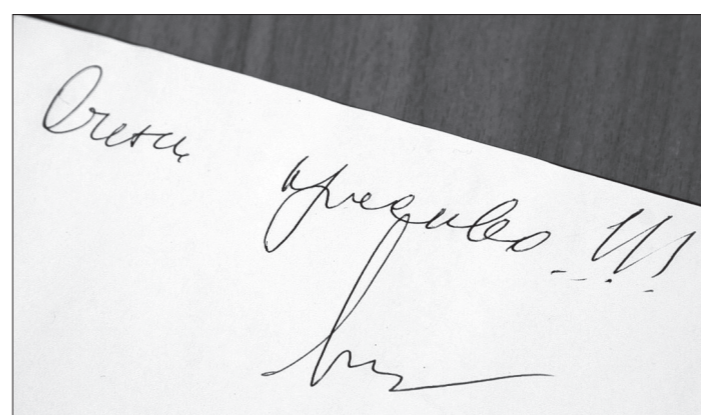 Очень
красиво!!!